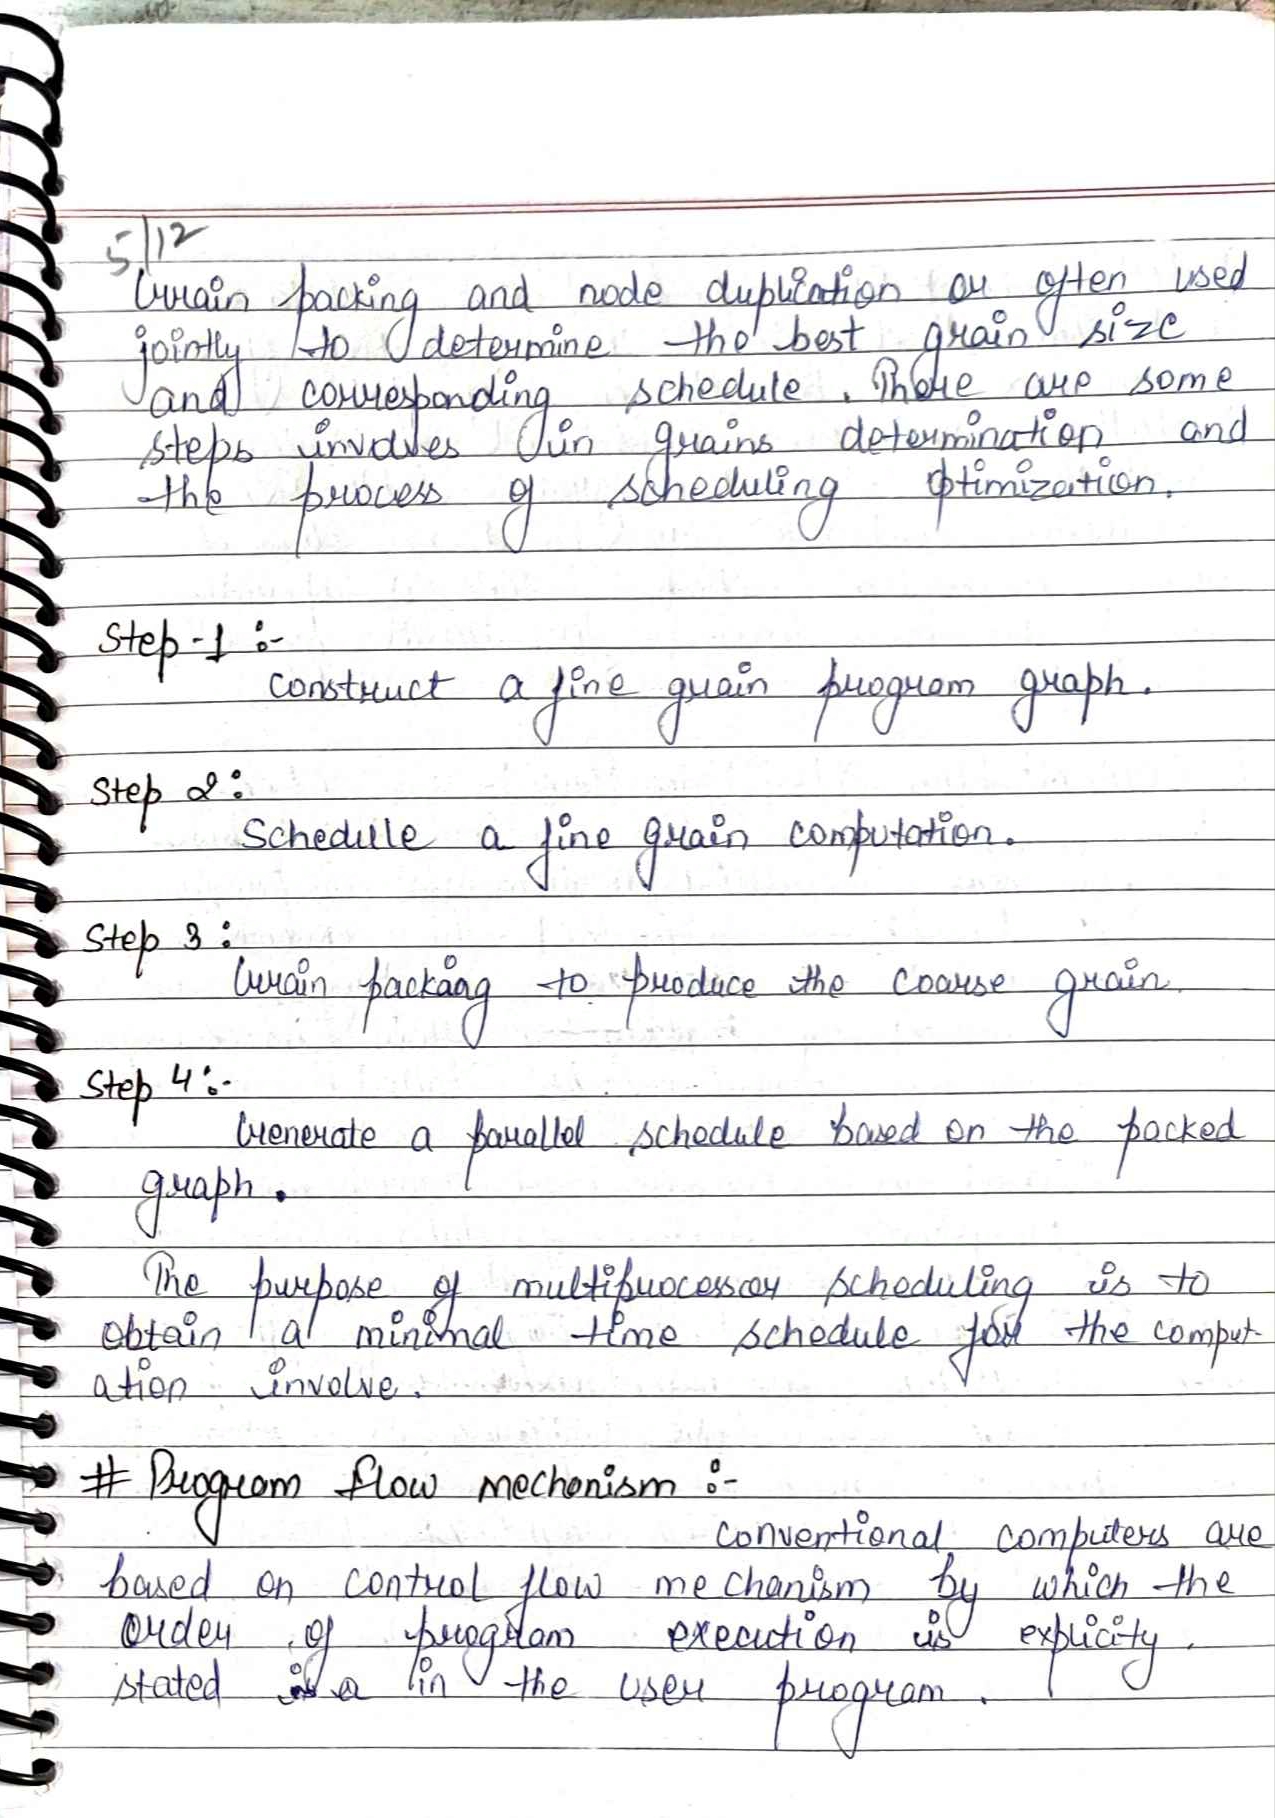 5/12
Grain packing and node duplication or often used
jointly to determine the best grain size
and corresponding schedule. There are some
steps involves in grains determination and
the process of scheduling optimization.
Step-1 :-
construct a fine grain program graph.
Step 2:
Schedule a fine grain computation.
Step 3 :
Grain packing to produce the coarse grain.
Step 4 :-
Generate a parallel schedule based on the packed
graph.
The purpose of multiprocessor scheduling is to
obtain a minimal time schedule for the comput-
ation involve.
# Program flow mechanism :-
conventional computers are
based on control flow mechanism by which the
order of program execution is explicity
stated a in the user program.